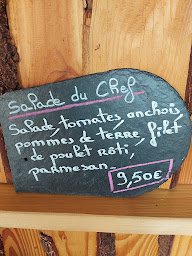 Salade du Chef
Salade, tomates, anchois,
pommes de terre, filet
de poulet rôti,
parmesan.
9,50€